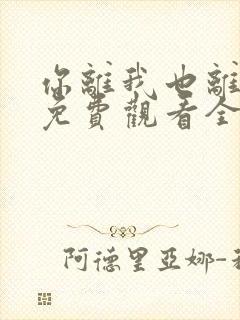 你離我也離
免費觀看全
阿德里亞娜-